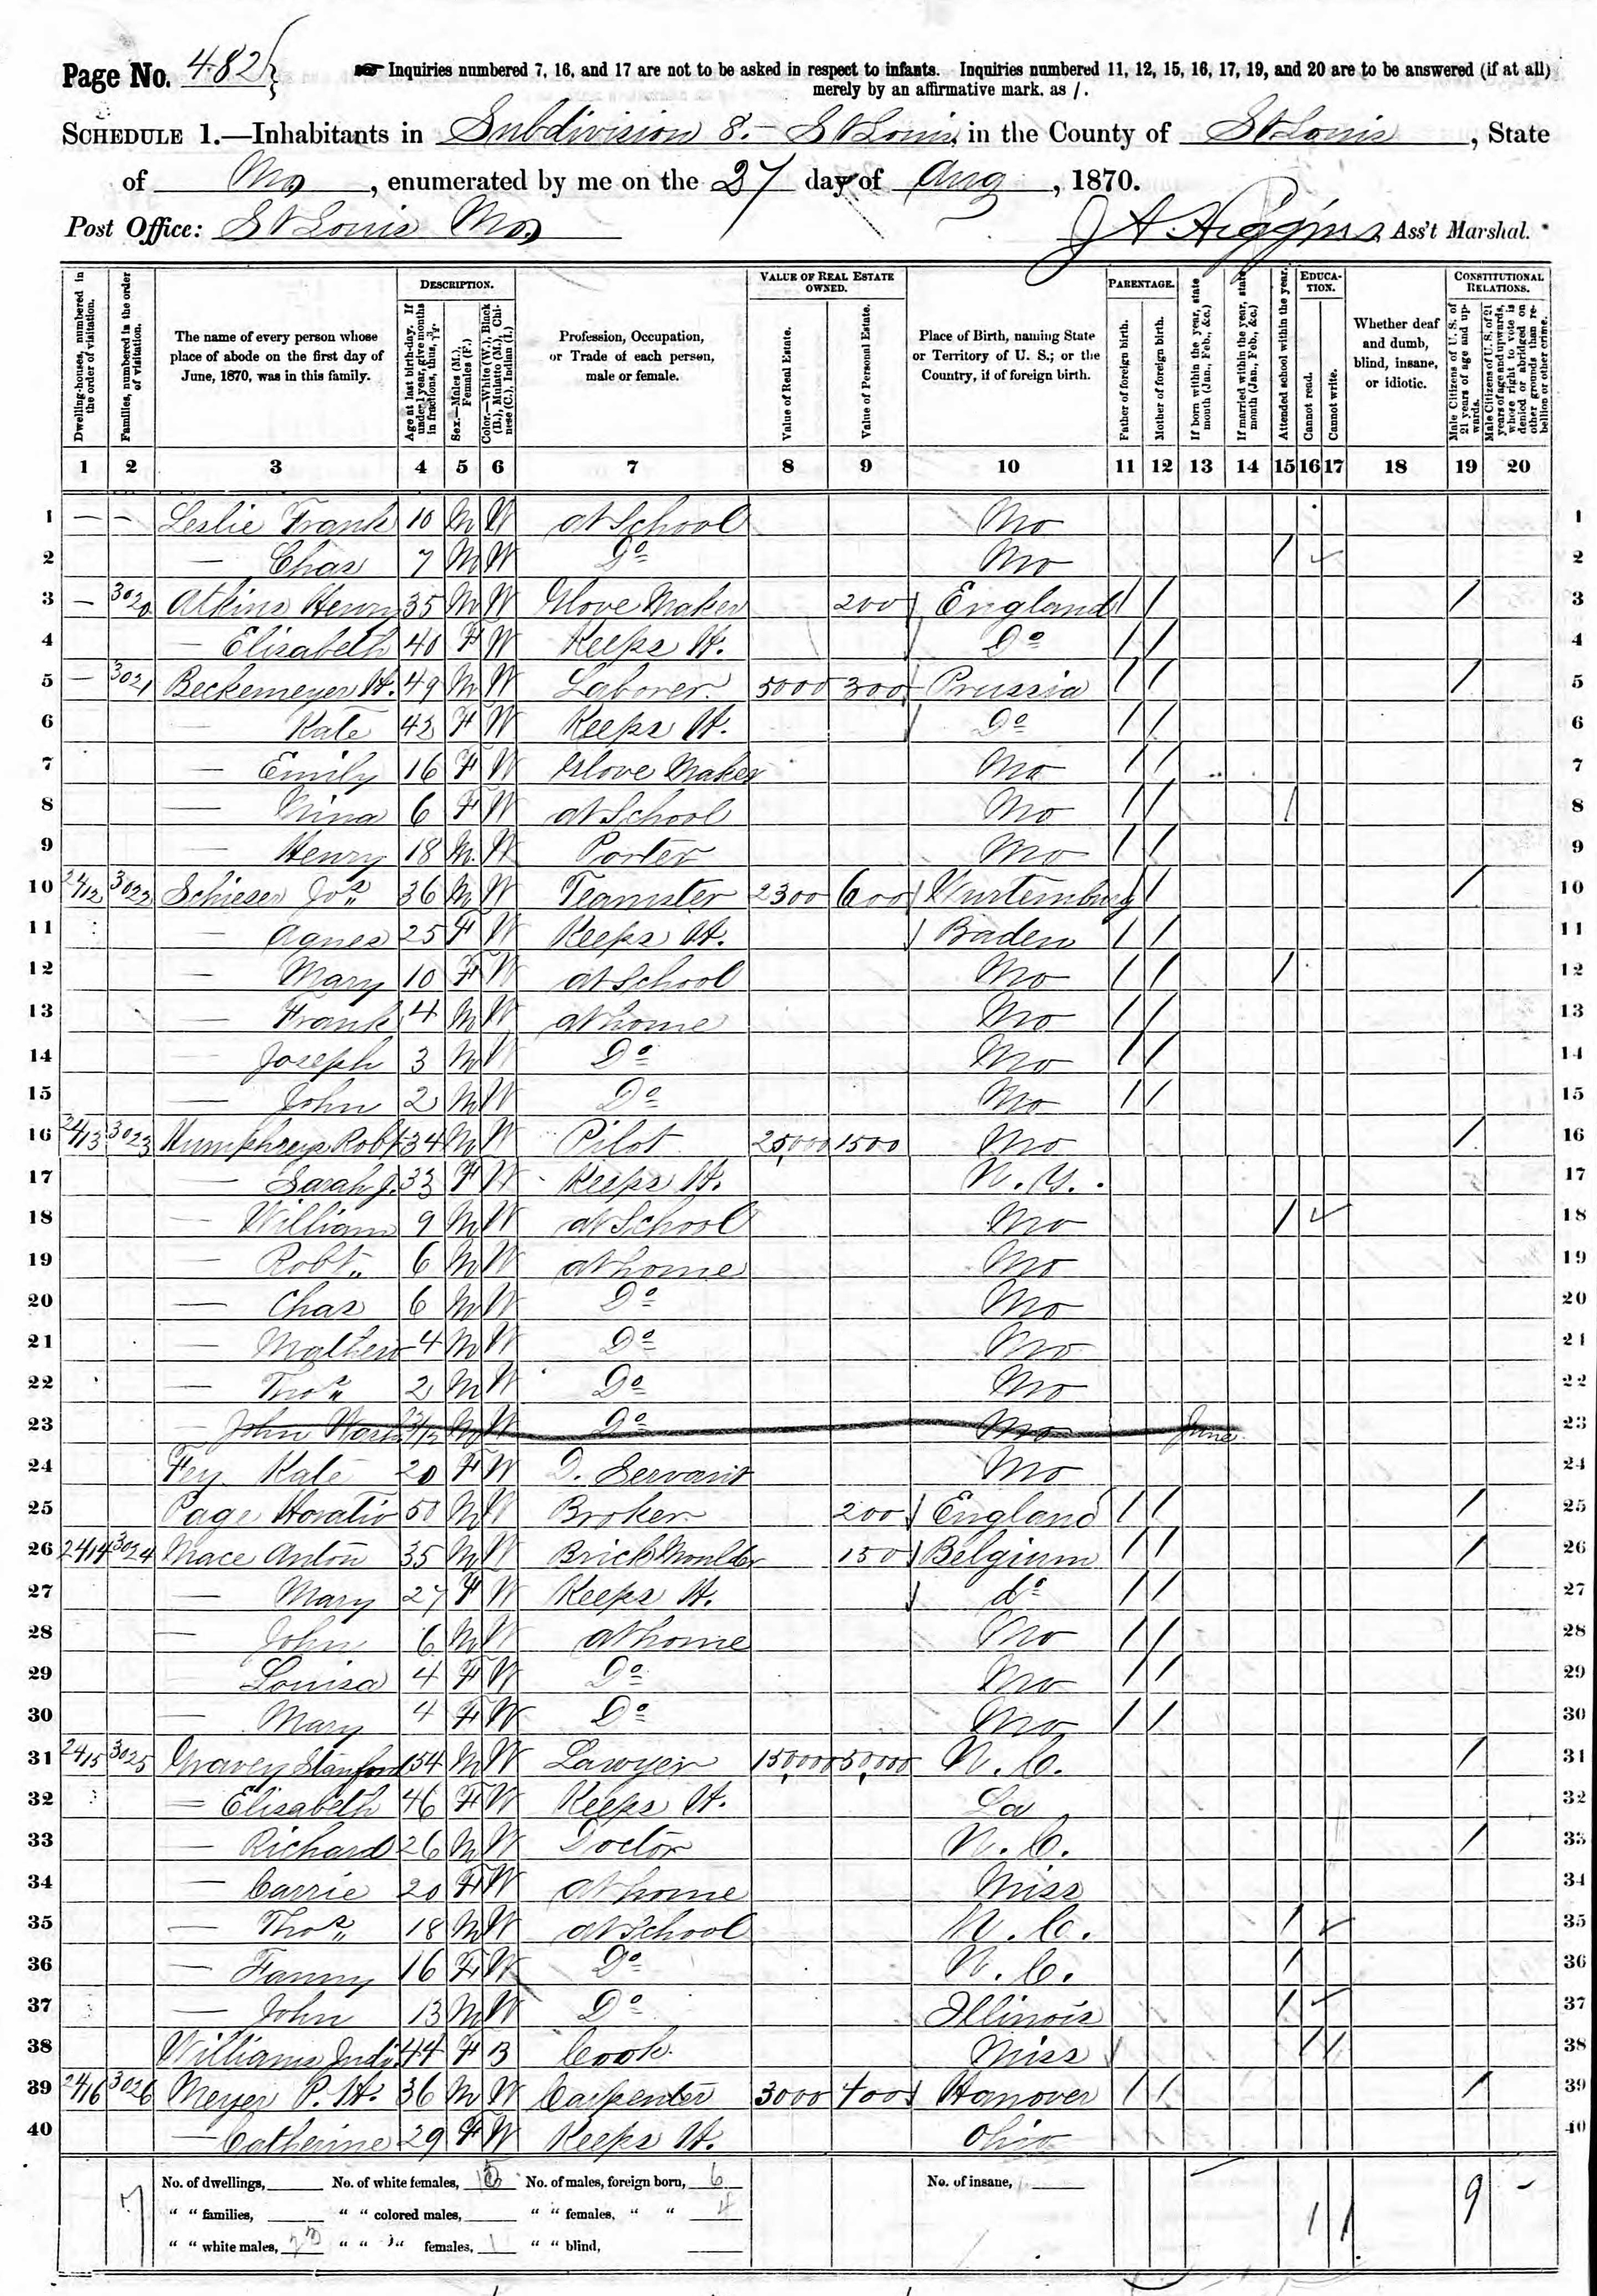 Page No. 482
Inquiries numbered 7, 16, and 17 are not to be asked in respect to infants. Inquiries numbered 11, 12, 15, 16, 17, 19, and 20 are to be answered (if at all)
merely by an affirmative mark, as /.
SCHEDULE 1.—Inhabitants in Subdivision 8.- St Louis, in the County of St Louis, State
of Mo, enumerated by me on the 27 day of Aug, 1870.
Post Office: St Louis Mo, J A. Higgins Ass't Marshal.
Dwelling-houses, numbered in the order of visitation.
Families, numbered in the order of visitation.
The name of every person whose place of abode on the first day of June, 1870, was in this family.
DESCRIPTION.
Age at last birth-day. If under 1 year, give months in fractions, thus, 3/12.
Sex.—Males (M.), Females (F.)
Color.—White (W.), Black (B.), Mulatto (M.), Chinese (C.), Indian (I.)
Profession, Occupation, or Trade of each person, male or female.
VALUE OF REAL ESTATE OWNED.
Value of Real Estate.
Value of Personal Estate.
Place of Birth, naming State or Territory of U. S.; or the Country, if of foreign birth.
PARENTAGE.
Father of foreign birth.
Mother of foreign birth.
If born within the year, state month (Jan., Feb., &c.)
If married within the year, state month (Jan., Feb., &c.)
Attended school within the year.
EDUCATION.
Cannot read.
Cannot write.
Whether deaf and dumb, blind, insane, or idiotic.
CONSTITUTIONAL RELATIONS.
Male Citizens of U. S. of 21 years of age and upwards.
Male Citizens of U. S. of 21 years of age and upwards, whose right to vote is denied or abridged on other grounds than rebellion or other crime.
1 2 3 4 5 6 7 8 9 10 11 12 13 14 15 16 17 18 19 20
1 — — Leslie Frank 10 M W at School Mo 1
2 — Chas 7 M W Do Mo / ✓ 2
3 — 3020 Atkins Henry 35 M W Glove Maker 200 England / / / 3
4 — Elisabeth 40 F W Keeps H. Do / / 4
5 — 3021 Beckemeyer H. 49 M W Laborer 5000 300 Prussia / / / 5
6 — Kate 42 F W Keeps H. Do / / 6
7 — Emily 16 F W Glove Maker Mo / / 7
8 — Nina 6 F W at School Mo / / / 8
9 — Henry 18 M W Porter Mo / / 9
10 2412 3022 Schieser Jos 36 M W Teamster 2300 600 Wurtemburg / / 10
11 — Agnes 25 F W Keeps H. Baden / / 11
12 — Mary 10 F W at School Mo / / / 12
13 — Frank 4 M W at home Mo / / 13
14 — Joseph 3 M W Do Mo / / 14
15 — John 2 M W Do Mo / / 15
16 2413 3023 Humphreys Robt 34 M W Pilot 25,000 1500 Mo / 16
17 — Sarah J. 33 F W Keeps H. N. Y. 17
18 — William 9 M W at School Mo / ✓ 18
19 — Robt 6 M W at home Mo 19
20 — Chas 6 M W Do Mo 20
21 — Mathew 4 M W Do Mo 21
22 — Thos 2 M W Do Mo 22
23 — John M W Do Mo June 23
24 Fey Kate 20 F W D. Servant Mo 24
25 Page Horatio 50 M W Broker 200 England / / / 25
26 2414 3024 Mace Anton 35 M W Brick Moulder 150 Belgium / / / 26
27 — Mary 27 F W Keeps H. do / / 27
28 — John 6 M W at home Mo / / 28
29 — Louisa 4 F W Do Mo / / 29
30 — Mary 4 F W Do Mo / / 30
31 2415 3025 Stanford 54 M W Lawyer 150,000 50,000 N. C. / 31
32 — Elisabeth 46 F W Keeps H. La 32
33 — Richard 26 M W Doctor N. C. / 33
34 — Carrie 20 F W at home Miss 34
35 — Thos 18 M W at School N. C. / ✓ 35
36 — Fanny 16 F W Do N. C. / 36
37 — John 13 M W Do Illinois / ✓ 37
38 Williams Judy 44 F B Cook Miss / / 38
39 2416 3026 Meyer P. H. 36 M W Carpenter 3000 400 Hanover / / / 39
40 — Catherine 29 F W Keeps H. Ohio 40
No. of dwellings, No. of white females, No. of males, foreign born, 6 No. of insane,
" " families, " " colored males, " " females, " " 4
" " white males, 23 " " " females, 1 " " blind,
7 1 1 9 -